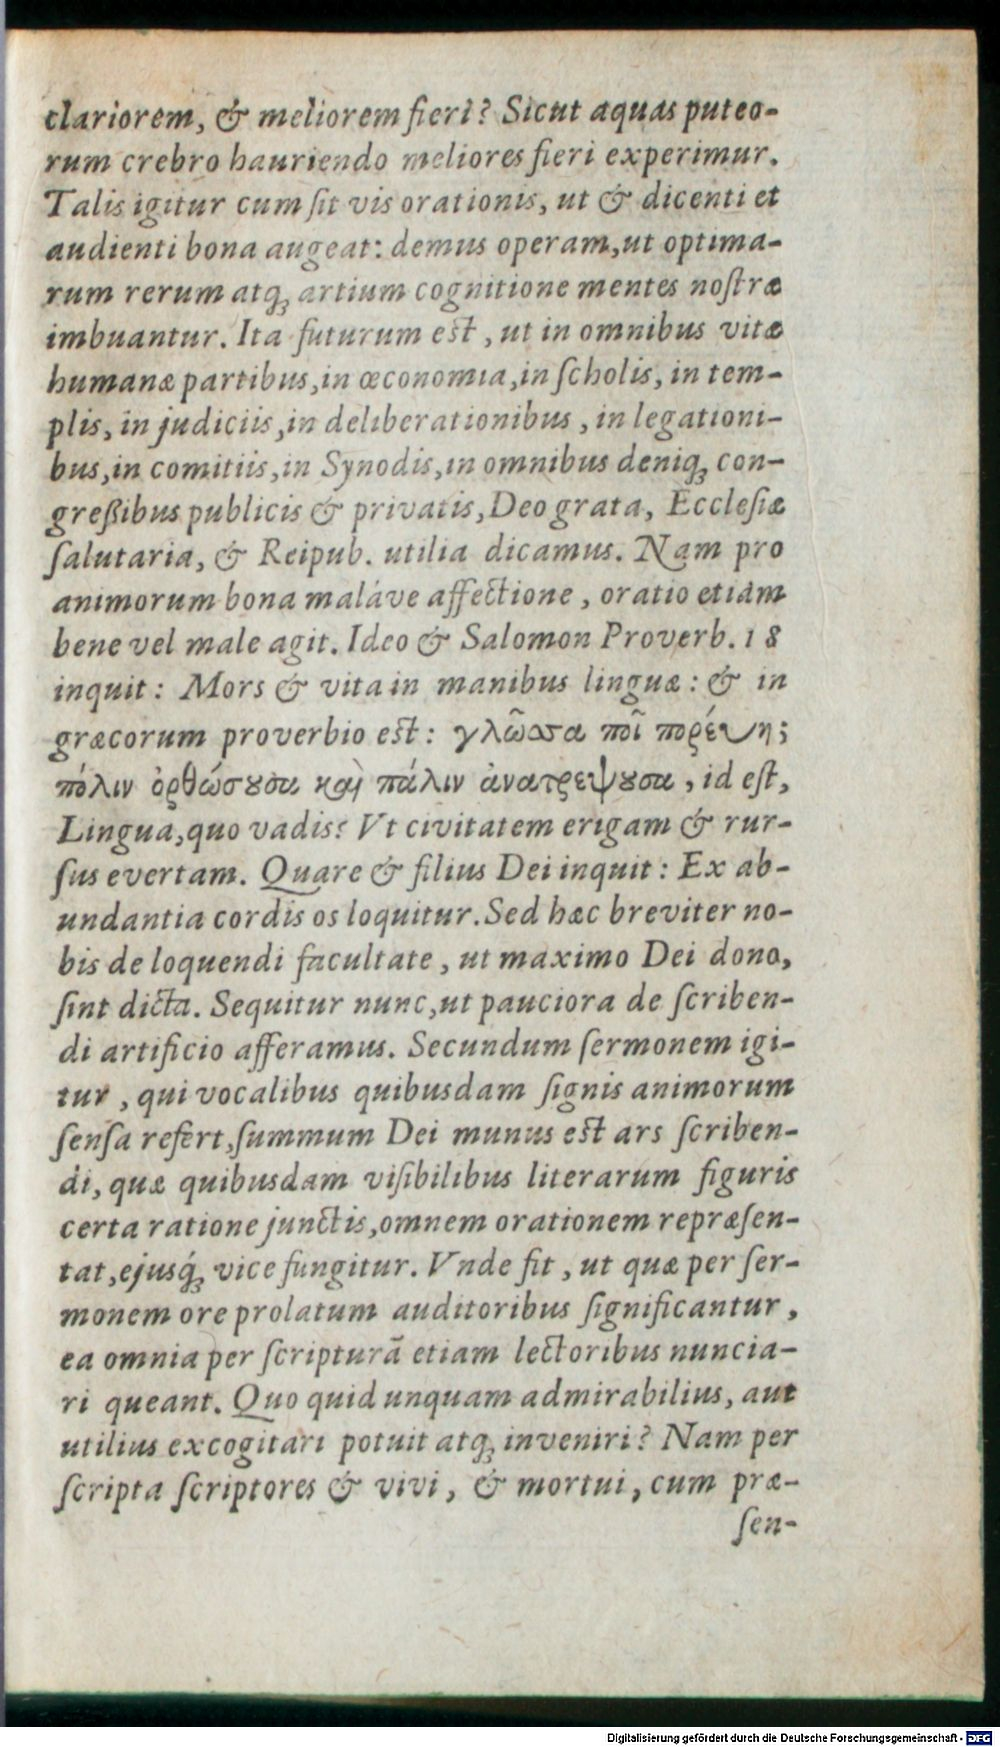 clariorem, & meliorem fieri? Sicut aquas puteo-
rum crebro hauriendo meliores fieri experimur.
Talis igitur cum ſit vis orationis, ut & dicenti et
audienti bona augeat: demus operam, ut optima-
rum rerum atq; artium cognitione mentes noſtræ
imbuantur. Ita futurum eſt, ut in omnibus vitæ
humanæ partibus, in œconomia, in ſcholis, in tem-
plis, in judiciis, in deliberationibus, in legationi-
bus, in comitiis, in Synodis, in omnibus deniq; con-
greßibus publicis & privatis, Deo grata, Eccleſiæ
ſalutaria, & Reipub. utilia dicamus. Nam pro
animorum bona maláve affectione, oratio etiam
bene vel male agit. Ideo & Salomon Proverb. 18
inquit: Mors & vita in manibus linguæ: & in
græcorum proverbio eſt: γλῶσσα ποῖ πορέυη;
πόλιν ὀρθώσουσα καὶ πάλιν ἀνατρεψουσα, id eſt,
Lingua, quo vadis? Vt civitatem erigam & rur-
ſus evertam. Quare & filius Dei inquit: Ex ab-
undantia cordis os loquitur. Sed hæc breviter no-
bis de loquendi facultate, ut maximo Dei dono,
ſint dicta. Sequitur nunc, ut pauciora de ſcriben-
di artificio afferamus. Secundum ſermonem igi-
tur, qui vocalibus quibusdam ſignis animorum
ſenſa refert, ſummum Dei munus eſt ars ſcriben-
di, quæ quibusdam viſibilibus literarum figuris
certa ratione junctis, omnem orationem repræſen-
tat, ejusq́; vice fungitur. Vnde fit, ut quæ per ſer-
monem ore prolatum auditoribus ſignificantur,
ea omnia per ſcripturã etiam lectoribus nuncia-
ri queant. Quo quid unquam admirabilius, aut
utilius excogitari potuit atq; inveniri? Nam per
ſcripta ſcriptores & vivi, & mortui, cum præ-
ſen-
Digitalisierung gefördert durch die Deutsche Forschungsgemeinschaft - DFG